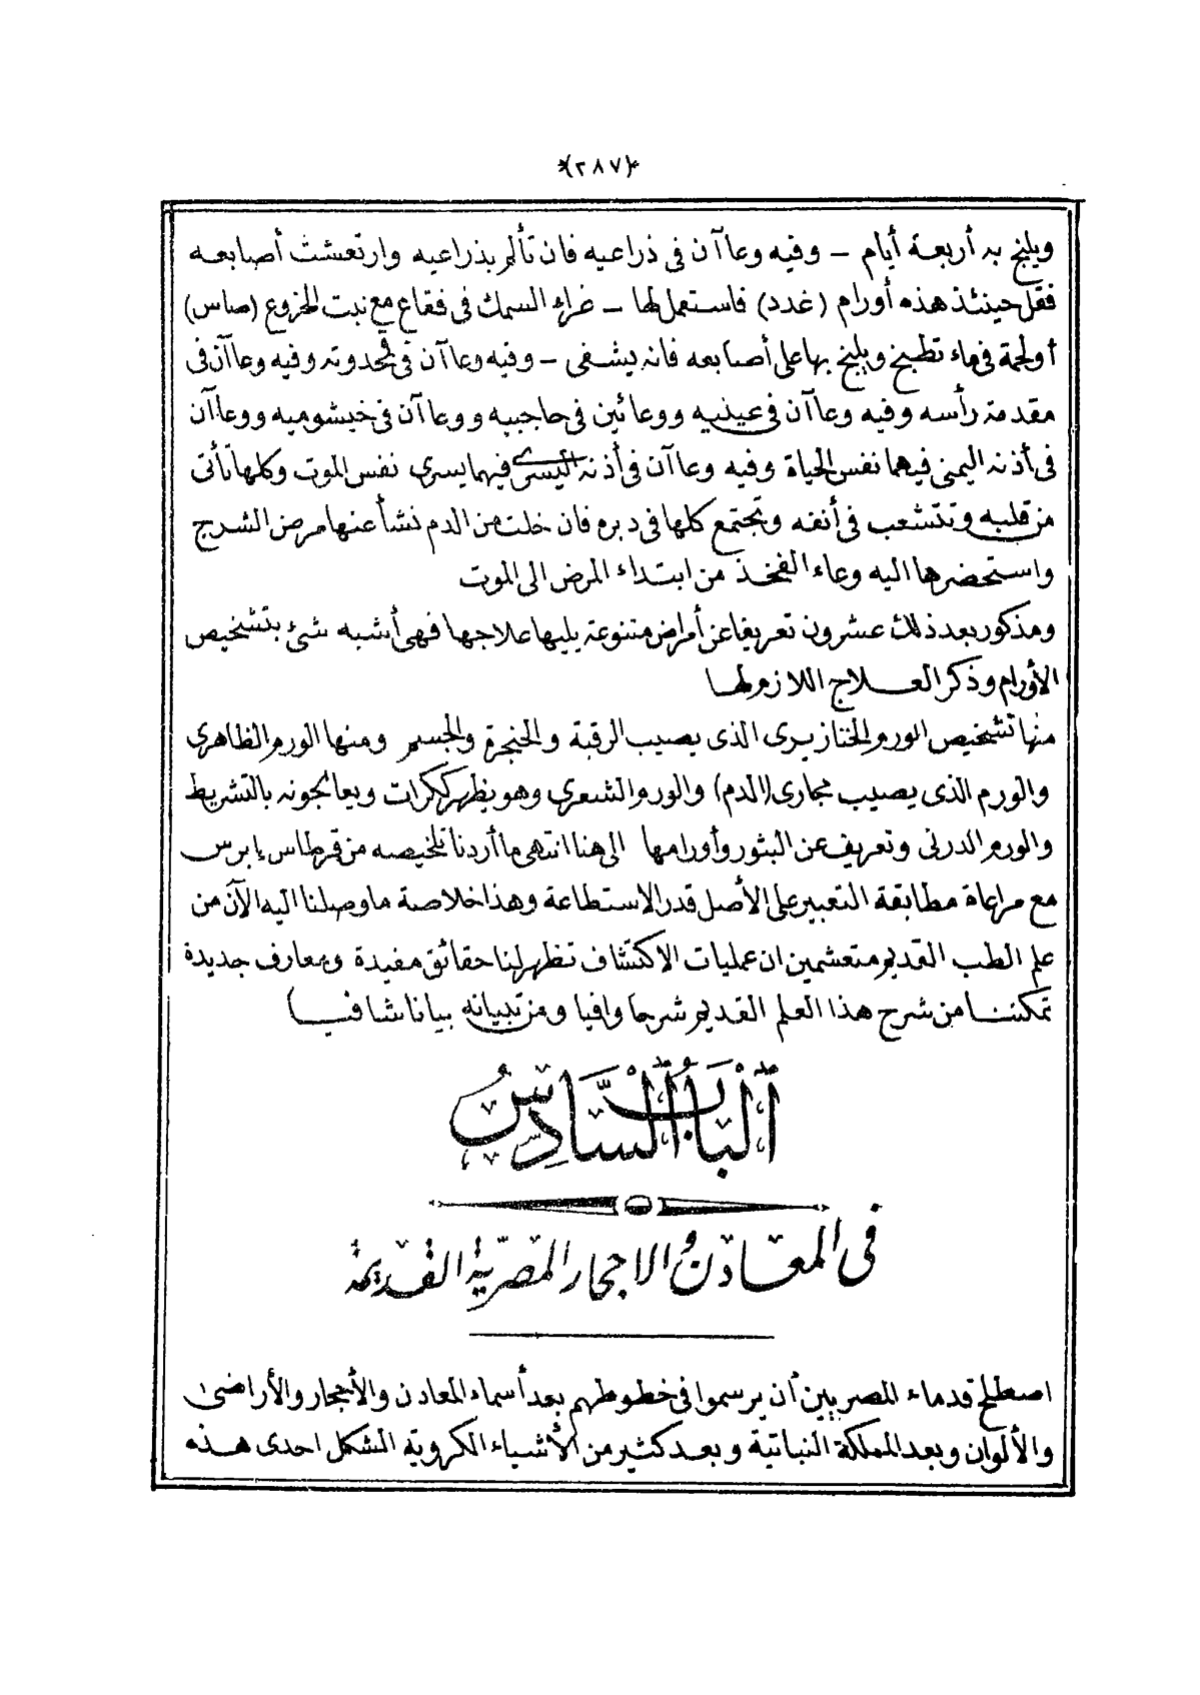 *(٢٨٧)*
ويلبخ به أربعة أيام – وفيه وعاآن فى ذراعيه فان تألم بذراعيه وارتعشت أصابعه
فقل حينئذ هذه أورام (غدد) فاستعمل لها – غراء السمك فى فقاع مع نبت الخروع (صاس)
أولحمة فى ماء تطبخ ويلبخ بها على أصابعه فانه يشفى – وفيه وعاآن فى قمحدوته وفيه وعاآن فى
مقدمة رأسه وفيه وعاآن فى عينيه ووعائين فى حاجبيه ووعاآن فى خيشوميه ووعاآن
فى أذنه اليمنى فيهما نفس الحياة وفيه وعاآن فى أذنه اليسرى فيهما يسرى نفس الموت وكلها تأتى
من قلبه وتتشعب فى أنفه وتجتمع كلها فى دبره فان خلت من الدم نشأ عنها مرض الشرج
واستحضرها اليه وعاء الفخذ من ابتداء المرض الى الموت
ومذكور بعد ذلك عشرون تعريفا عن أمراض متنوعة يليها علاجها فهى أشبه شئ بتشخيص
الأورام وذكر العلاج اللازم لها
منها تشخيص الورم الخنازيرى الذى يصيب الرقبة والحنجرة والجسم ومنها الورم الظاهرى
والورم الذى يصيب مجارى (الدم) والورم الشعرى وهو يظهر ككرات ويعالجونه بالتشريط
والورم الدرنى وتعريف عن البثور وأورامها الى هنا انتهى ما أردنا تلخيصه من قرطاس إبرس
مع مراعاة مطابقة التعبير على الأصل قدر الاستطاعة وهذا خلاصة ما وصلنا اليه الآن من
علم الطب القديم متعشمين ان عمليات الاكتشاف تظهر لنا حقائق مفيدة ومعارف جديدة
تمكننا من شرح هذا العلم القديم شرحا وافيا ومن تبيانه بيانا شافيا
اَلْبَابُ السَّادِسُ
فى المعادن والاحجار المصرية القديمة
اصطلح قدماء المصريين أن يرسموا فى خطوطهم بعد أسماء المعادن والأحجار والأراضى
والألوان وبعد المملكة النباتية وبعد كثير من الأشياء الكروية الشكل احدى هذه